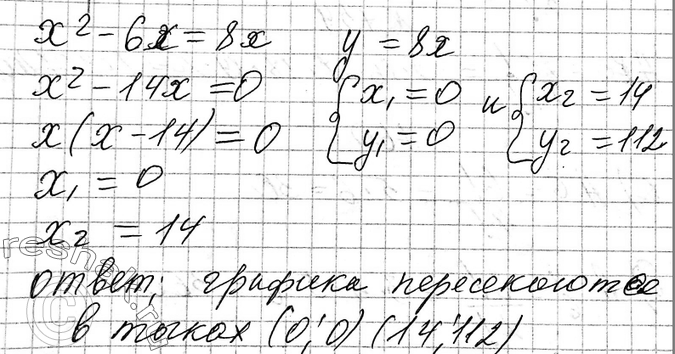 x² - 6x = 8x
x² - 14x = 0
x(x - 14) = 0
x₁ = 0
x₂ = 14
y = 8x
{x₁ = 0 и {x₂ = 14
y₁ = 0 y₂ = 112
ответ; графика пересекаются
в точках (0; 0) (14; 112)
reshak.ru